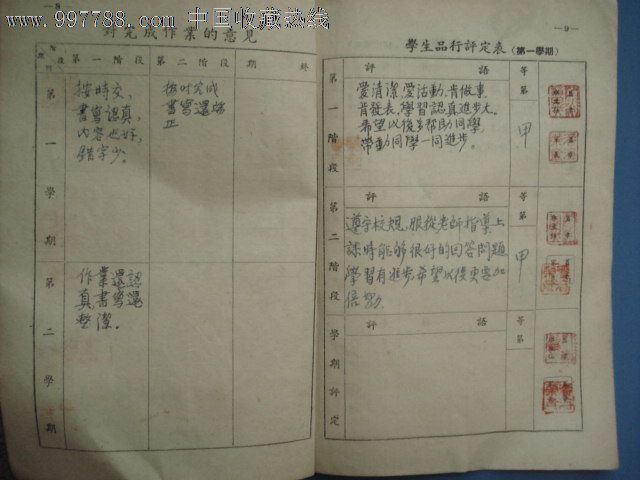 —8
www.997788.com 中国收藏热线
對完成作業的意見
階段
第一階段
第二階段
期終
第一學期
按時交,
書寫認真,
內容也好,
錯字少。
按时完成
書寫還端
正
第二學期
作業還認
真,書寫還
整潔。
—9—
學生品行評定表(第一學期)
第一階段
評語
等第
愛清潔,愛活動,肯做事,
肯發表,學習認真進步大。
希望以後多幫助同學,
帶動同學一同進步。
甲
第二階段
評語
等第
遵守校規,服從老師指導上
課時能够很好的回答問題
學習有進步,希望以後更要加
倍努力
甲
學期評定
評語
等第